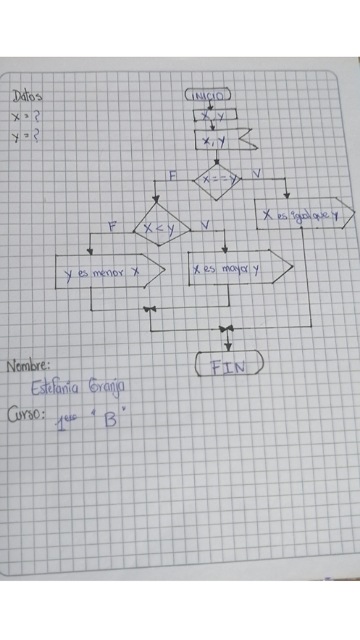 Datos
x = ?
y = ?
INICIO
x, y
x, y
x == y
F
V
X es igual que y
x < y
F
V
y es menor x
x es mayor y
FIN
Nombre:
Estefania Granja
Curso:
1ero " B "